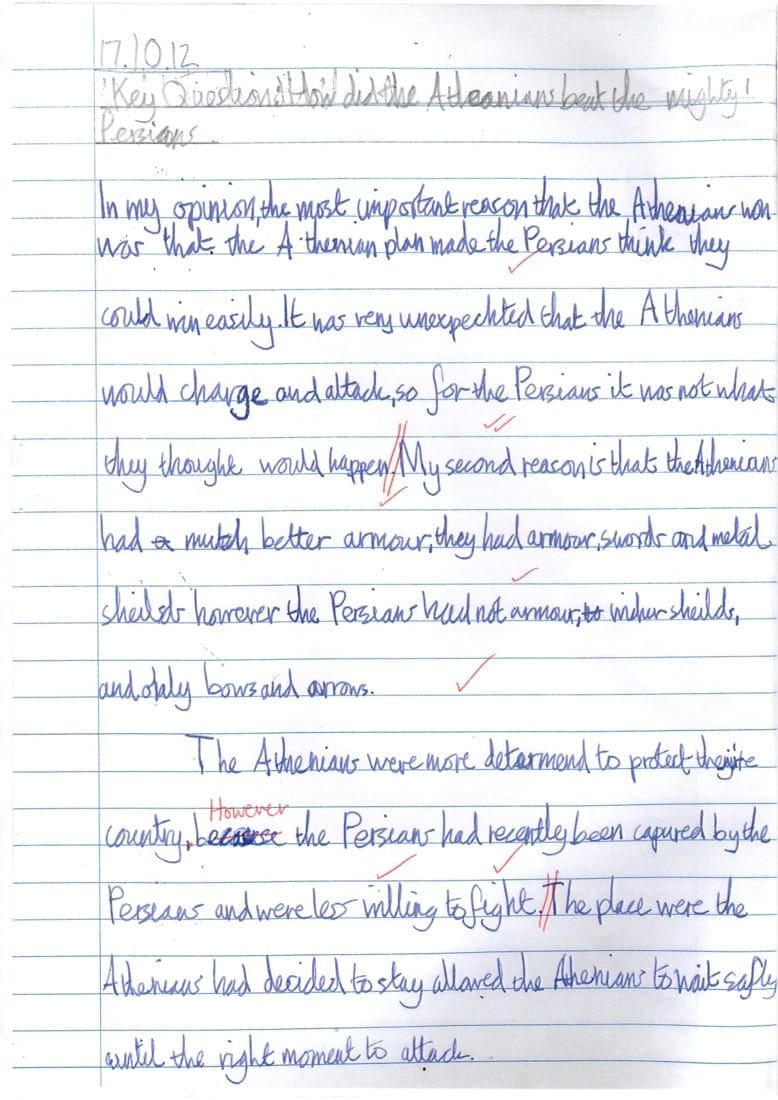 17.10.12
'Key Question: How did the Atheanians beat the mighty'
Persians.
In my opinion, the most important reason that the Athenians won
was that the Athenian plan made the Persians think they
could win easily. It was very unexpechted that the Athenians
would charge and attack, so for the Persians it was not what
they thought would happen. // My second reason is that the Athenians
had a mutch better armour, they had armour, swords and metal
sheilds however the Persians had not armour, to wicker sheilds,
and olnly bows and arrows.
The Athenians were more determend to protect theyire
However
country, because the Persians had recently been capured by the
Perseans and were less willing to fight. // The place were the
Athenians had decided to stay allowed the Athenians to wait safly
until the right moment to attack.